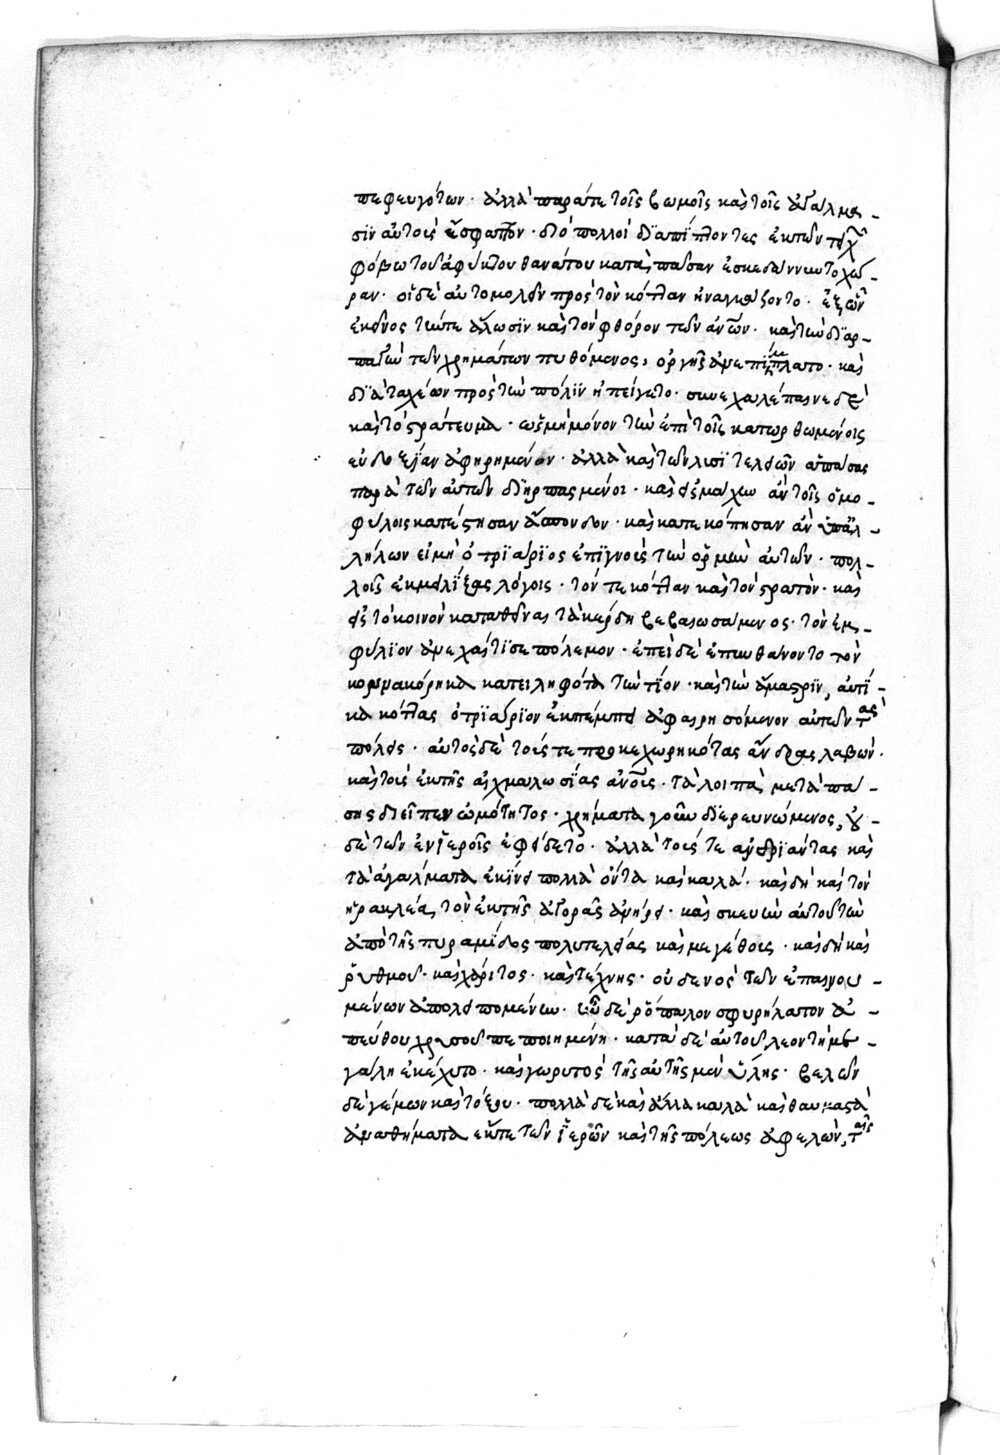 πεφευγότων· ἀλλὰ παρά τε τοῖς βωμοῖς καὶ τοῖς ἀγάλμα-
σϊν αὐτοῖς ἔσφαττον· διὸ πολλοὶ διαπίπτοντες ἐκ τῶν τειχῶν
φόβω τοῦ ἀφύκτου θανάτου κατὰ πᾶσαν ἐσκεδάννυντο χώ-
ραν· οἱ δὲ αὐτομολεῖν πρὸς τὸν κότταν ἠναγκάζοντο· ἐξ ὧν
ἐκεῖνος τήν τε ἅλωσϊν καὶ τὸν φθόρον τῶν ἀνων· καὶ τὴν δϊαρ-
παγὴν τῶν χρημάτων πυθόμενος, ὀργῆς ἀνεπίμπλατο· καὶ
δϊὰ ταχέων πρὸς τὴν πόλϊν ἠπείγετο· συνεχαλέπαινε δὲ
καὶ τὸ στράτευμα· ὡς μὴ μόνον τὴν ἐπὶ τοῖς κατωρθωμένοις
εὐδοξΐαν ἀφηρημένον· ἀλλὰ καὶ τῶν λυσϊτελειῶν ἁπάσας
παρὰ τῶν αὐτῶν δϊηρπασμένοι· καὶ εἰς μάχην ἂν τοῖς ὁμο-
φύλοις κατέστησαν ἄσπονδον· καὶ κατεκόπησαν ἂν ὑπ' ἀλ-
λήλων εἰ μὴ ὁ τρϊάρϊος ἐπϊγνοὺς τὴν ὁρμὴν αὐτῶν· πολ-
λοῖς ἐκμειλΐξας λόγοις· τόν τε κότταν καὶ τὸν στρατόν· καὶ
εἰς τὸ κοινὸν καταθεῖναι τὰ κέρδη βεβαιωσάμενος· τὸν ἐμ-
φύλϊον ἀνεχαίτϊσε πόλεμον· ἐπεὶ δὲ ἐπυνθάνοντο τὸν
κοννακόρηκα κατειληφότα τὴν τΐον· καὶ τὴν ἄμαστρϊν, αὐτΐ-
κα κότταν ὁ τρϊάρϊον ἐκπέμπει ἀφαιρησόμενον αὐτῶν τὰς
πόλεις· αὐτὸς δὲ τούς τε προκεχωρηκότας ἄνδρας λαβών·
καὶ τοὺς ἐκ τῆς αἰχμαλωσΐας ἀνους· τὰ λοιπὰ μετὰ πά-
σης διεῖπεν ὠμότητος· χρήματα γοῦν δϊερευνώμενος, οὐ-
δὲ τῶν ἐν ἱεροῖς ἐφείδετο· ἀλλὰ τούς τε ἀνδρϊάντας καὶ
τὰ ἀγάλματα ἐκΐνει πολλὰ ὄντα καὶ καλά· καὶ δὴ καὶ τὸν
ἡρακλέα, τὸν ἐκ τῆς ἀγορᾶς ἀνῄρει· καὶ σκευὴν αὐτοῦ τὴν
ἀπὸ τῆς πυραμίδος πολυτελείας καὶ μεγέθους· καὶ δὴ καὶ
ῥυθμοῦ· καὶ χάριτος· καὶ τέχνης· οὐδενὸς τῶν ἐπαινου-
μένων ἀπολειπομένην· ἦν δὲ ῥόπαλον σφυρήλατον ἀ-
πέφθου χρυσοῦ πεποιημένη· κατὰ δὲ αὐτοῦ λεοντῆ με-
γάλη ἐκέχυτο· καὶ γωρυτὸς τῆς αὐτῆς μὲν ὕλης· βελῶν
δὲ γέμων καὶ τόξου· πολλὰ δὲ καὶ ἄλλα καλὰ καὶ θαυμαστὰ
ἀναθήματα ἔκ τε τῶν ἱερῶν καὶ τῆς πόλεως ἀφελὼν, ταῖς